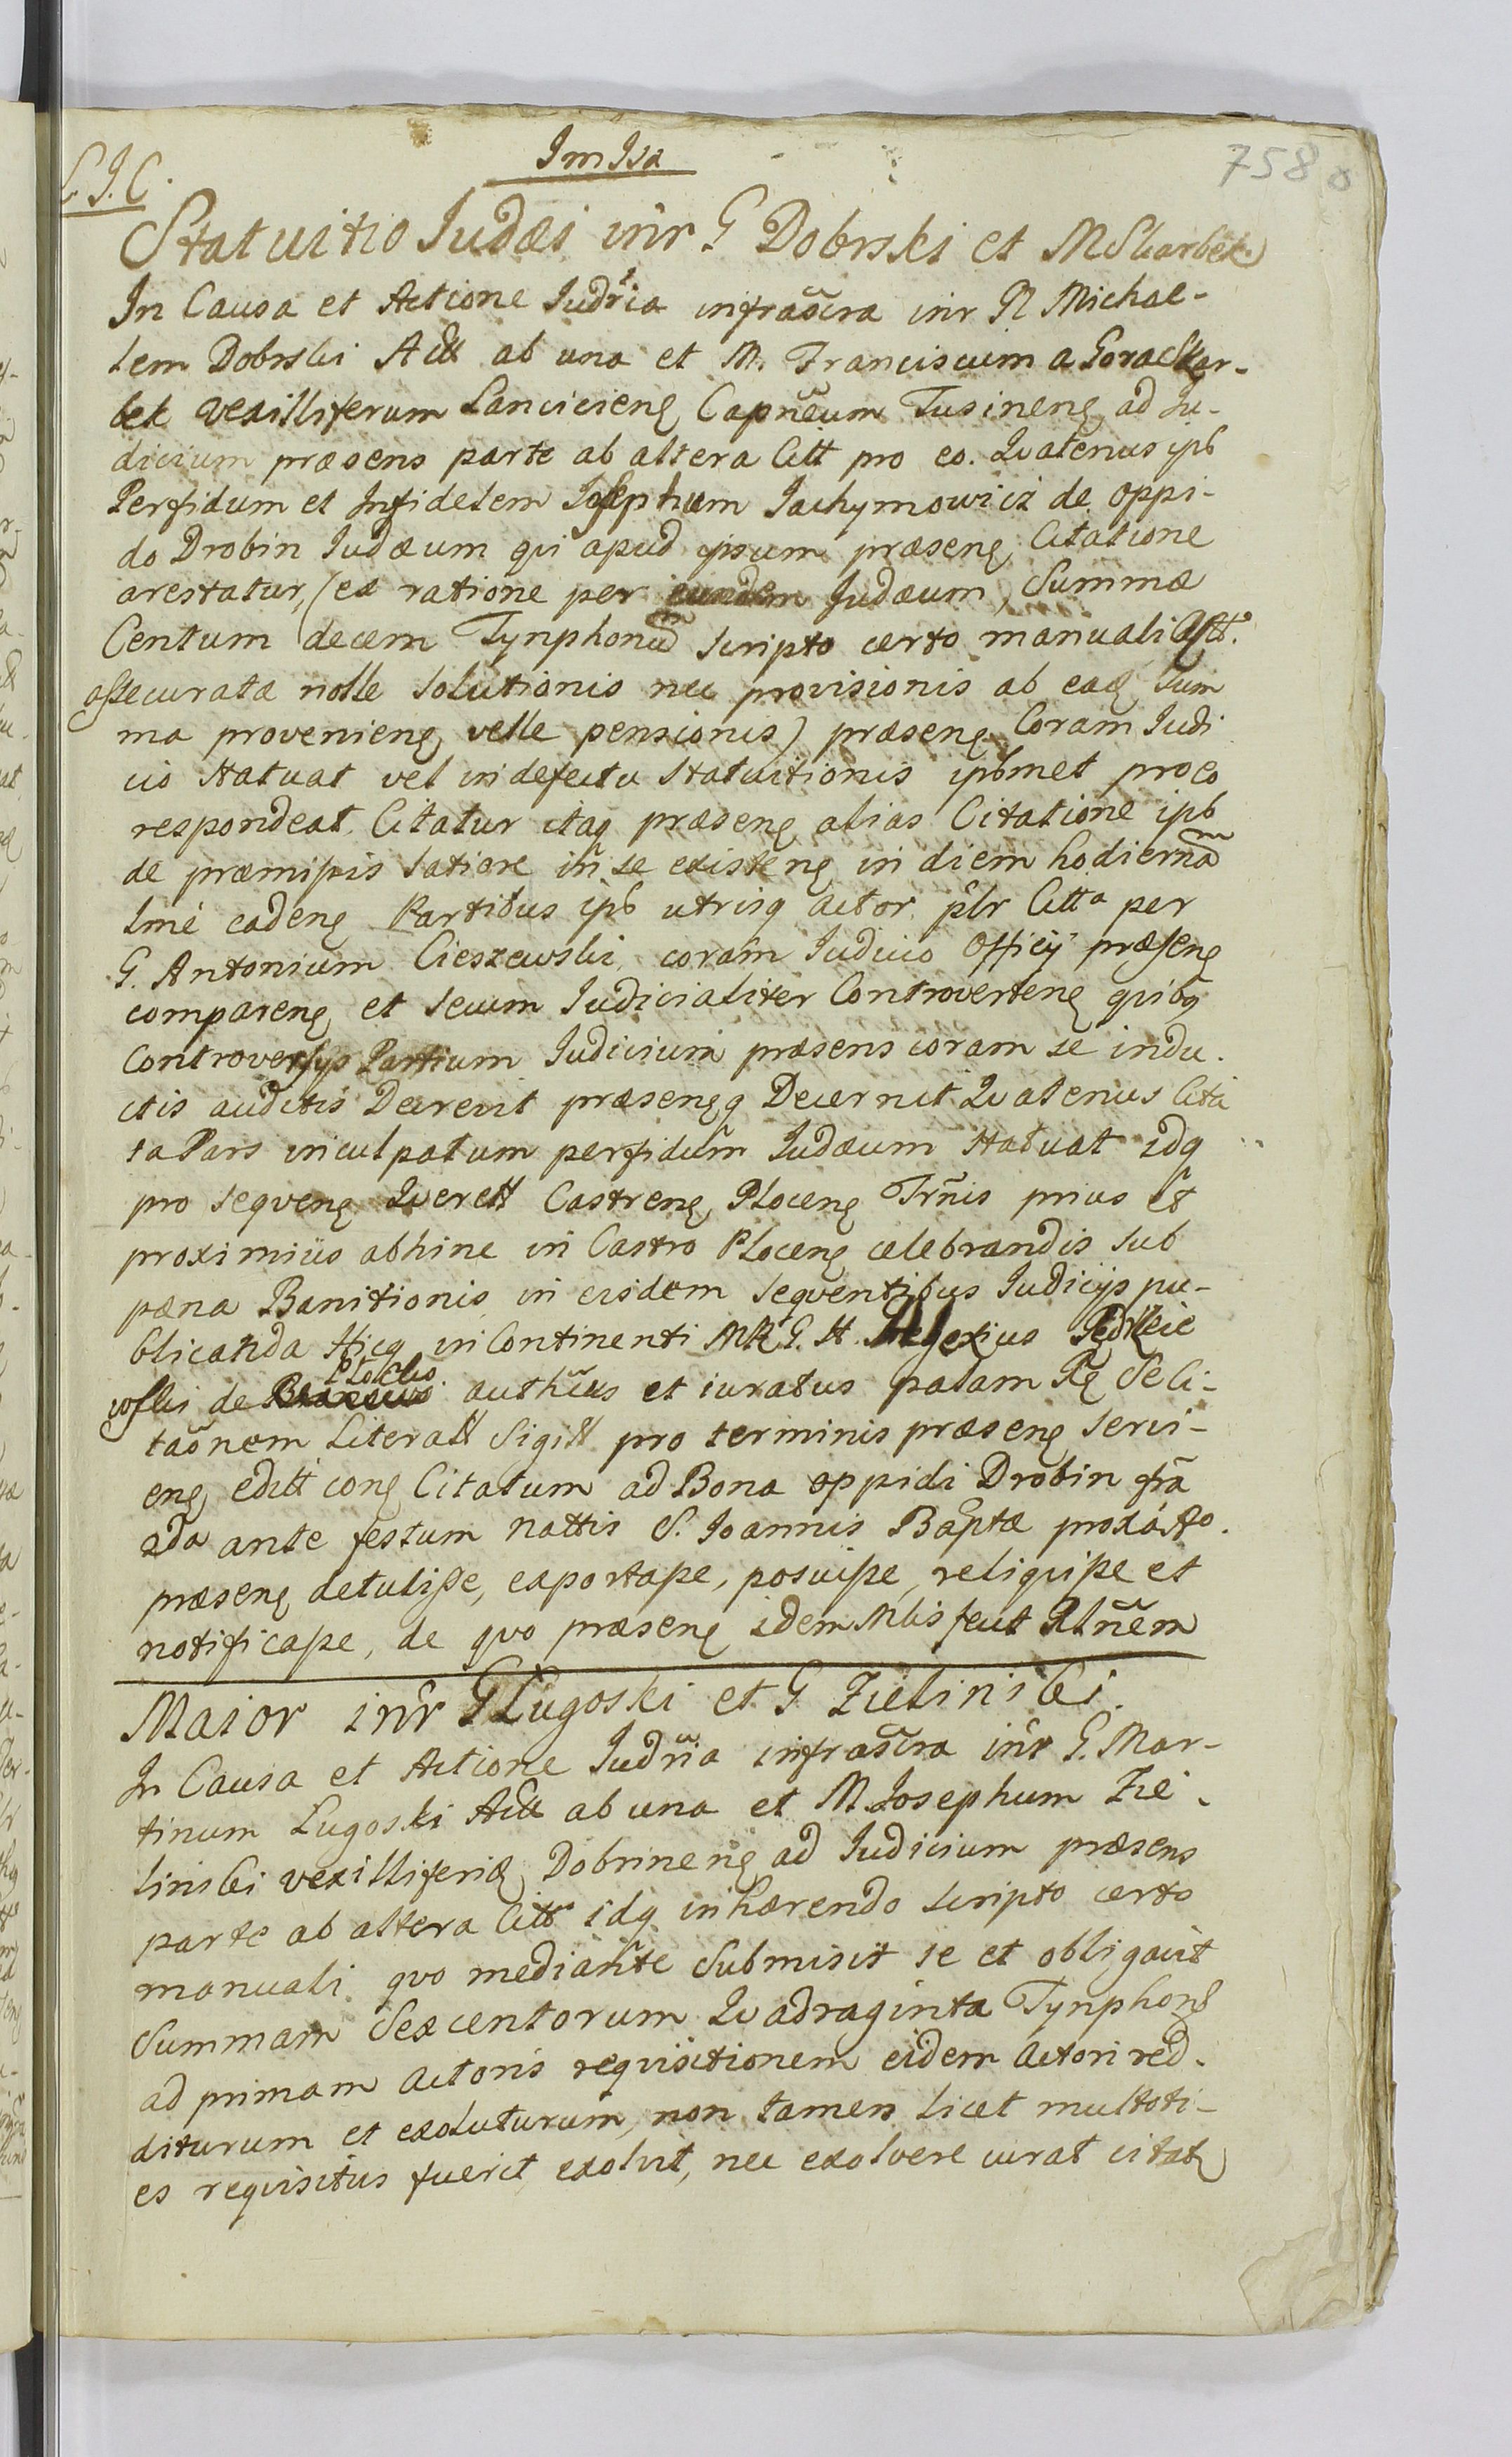 Im Isa
758
C. J. C.
Statuitio Judæi inr G Dobrski et M Skarbek
In Causa et Actione Judria infrascra inr G Michae-
lem Dobrski Act ab una et M. Franciscum a Gora Skar-
bek Vexilliferum Lancicien Capneum Tusinen ad Ju-
dicium præsens parte ab altera Citt pro eo. Qvatenus ips
Perfidum et Infidelem Josephum Jachymowicz de oppi-
do Drobin Judæum qvi apud ipsum præsen Citatione
arestatur, (ex ratione per eundem Judæum, Summæ
Centum decem Tynphonũ scripto certo manuali Act.
assecuratæ nolle solutionis nec provisionis ab ead Sum
ma provenien velle pensionis) præsen Coram Judi
cio statuat vel in defectu statuitionis ipsmet pro eo
respondeat. Citatur itaq præsen alias Citatione ips
de præmissis latiore in se existen in diem hodiernã
lme caden Partibus ips utrisq actor. plr Citta per
G. Antonium Cieszewski, coram Judicio Officij præsen
comparen et secum Judicialiter Controverten qvibq
Controversys Partium Judicium præsens coram se indu-
ctis auditis Decrevit præsenq Decernit Qvatenus Cita
ta Pars inculpatum perfidum Judæum statuat idq
pro seqven Qverell Castren Plocen Trnis prius et
proximius abhinc in Castro Plocen celebrandis sub
pæna Banitionis in eisdem seqventibus Judicijs pu-
blicanda Hicq in Continenti MRG. H. Gregorius
wski de Plocko authũs et iuratus palam Rg Se Ci-
taonem Literall Sigill pro terminis præsen servi-
en edilt con Citatum ad Bona oppidi Drobin fria
2da ante festum Nattis S. Joannis Baptæ proxa Ao.
præsen detulisse, exportasse, posuisse, reliqvisse et
notificasse, de qvo præsen idem Mlis fecit Rlnẽm
Maior inr G Lugoski et G Zielinski.
In Causa et Actione Judria infrascra inr G. Mar-
tinum Lugoski Act ab una et M. Josephum Zie-
linski vexilliferid Dobrinen ad Judicium præsens
parte ab altera Citt idq inhærendo scripto certo
manuali qvo mediante submisit se et obligavit
Summam Sexcentorum Qvadraginta Tynphon
ad primam actoris reqvisitionem eidem Actori red-
diturum et exoluturum, non tamen licet multoti-
es reqvisitus fuerit exolvit, nec exolvere curat citat